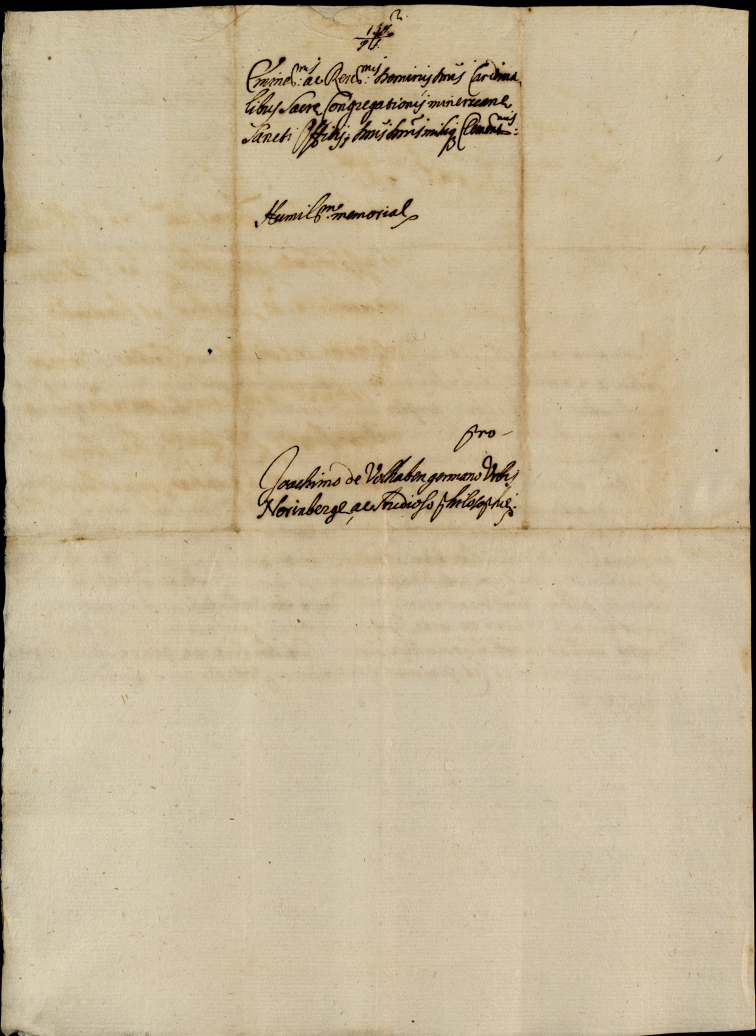 Emine^mis: ac Rev^mis: Dominis dnis Cardina
libus Sacre Congregationis minervane
Sancti Officij, dnis dnis mihi Clement^mis:
Humil^m: memorial
pro
Joachimo de Volkaben germano Urbis
Norinberge ac studioso philosophie